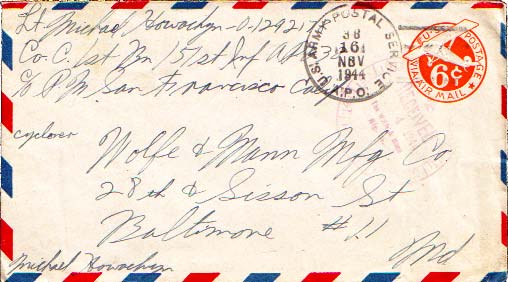 Lt. Michael Howachyn O-12921
Co. C. 1st Bn 151st Inf A.P.O. 32
c/o P. M. San Francisco Calif
U.S. ARMY POSTAL SERVICE
16
NOV
1944
A.P.O.
U.S. POSTAGE
6¢
VIA AIR MAIL
RECEIVED
cyclover
Wolfe & Mann Mfg Co.
28th & Sisson St
Baltimore #11
Md
Michael Howachyn